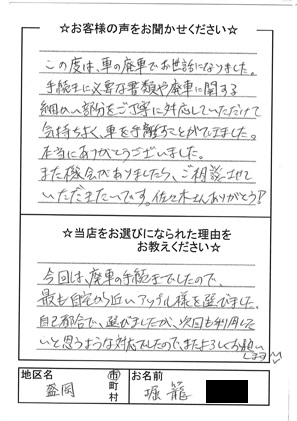 ☆お客様の声をお聞かせください☆
この度は、車の廃車でお世話になりました。
手続きに必要な書類や廃車に関する
細かい部分をご丁寧に対応していただけて
気持ちよく、車を手離すことができました。
本当にありがとうございました。
また機会がありましたら、ご相談させて
いただきたいです。佐々木さんありがとう!
☆当店をお選びになられた理由を
お教えください☆
今回は、廃車の手続きでしたので、
最も自宅から近いアップル様を選びました。
自己都合で、選びましたが、次回も利用した
いと思うような対応でしたので、またよろしくお願い
します
地区名 盛岡 市町村 お名前 堀籠